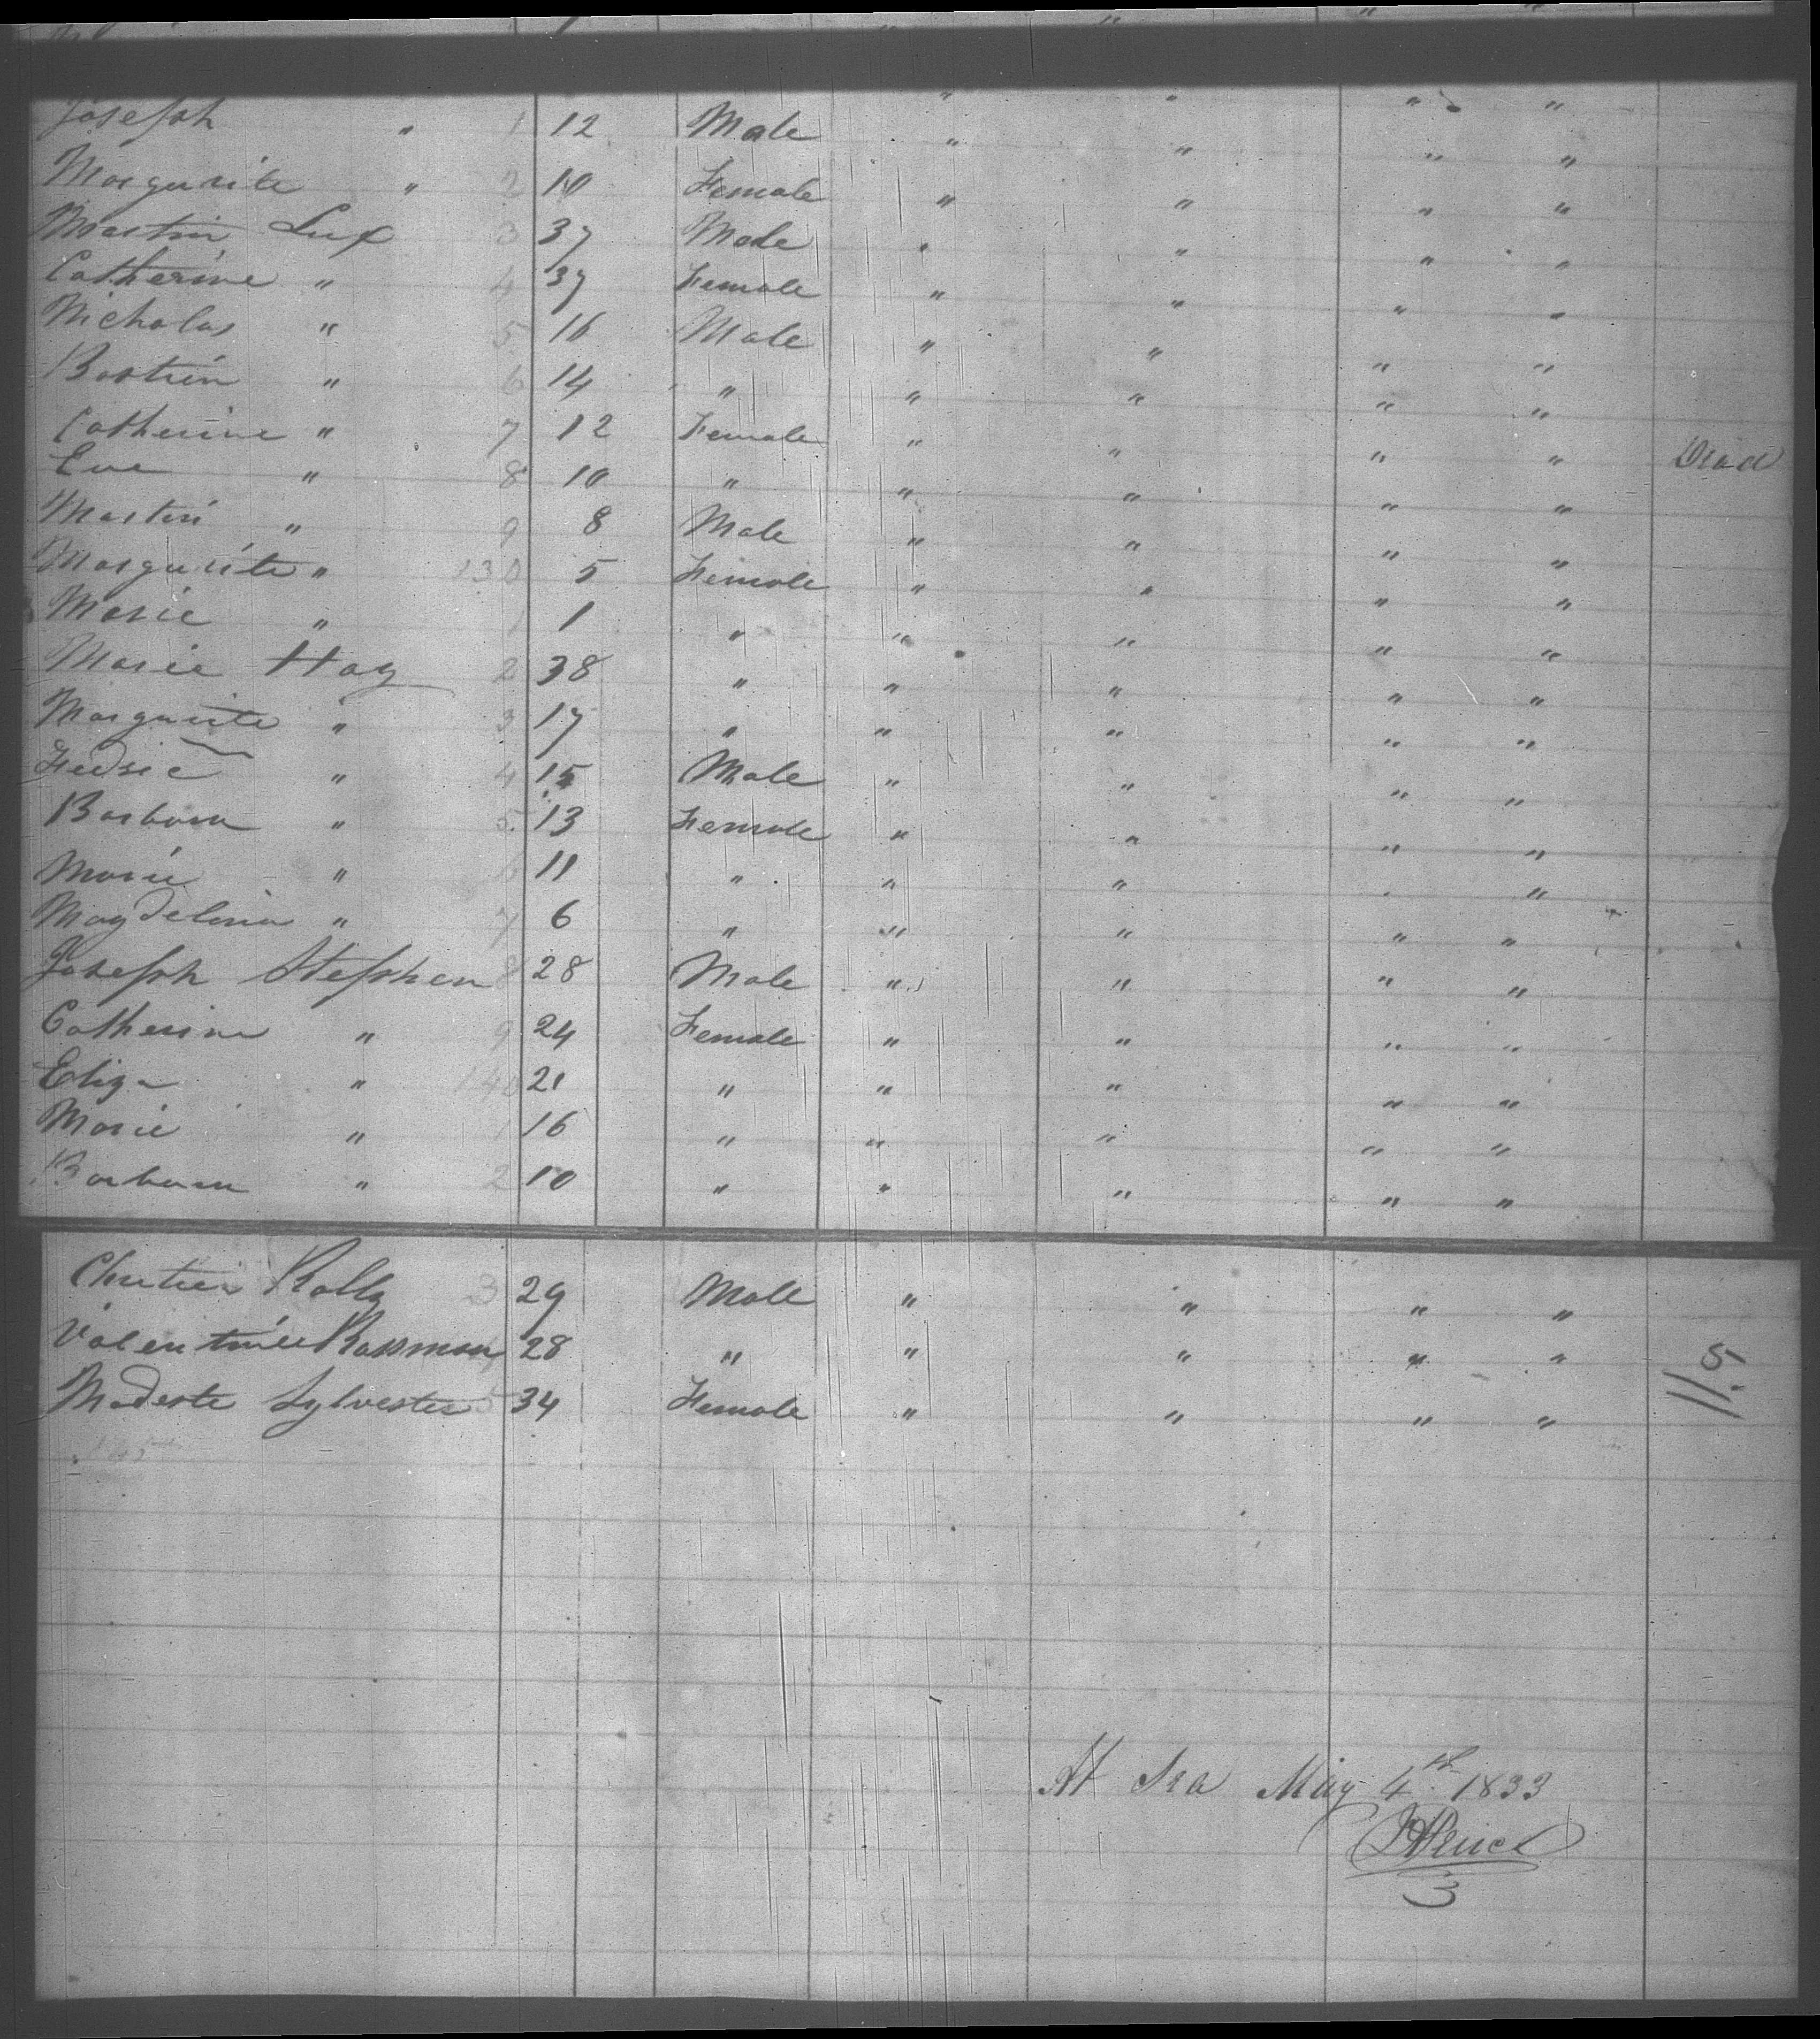 Joseph " 1 12 Male " " " "
Margurite " 2 10 Female " " " "
Martin Lux 3 37 Male " " " "
Catherine " 4 37 Female " " " "
Nicholas " 5 16 Male " " " "
Bastien " 6 14 " " " " "
Catherine " 7 12 Female " " " "
Eve " 8 10 " " " " " Dead
Martin " 9 8 Male " " " "
Margurite " 130 5 Female " " " "
Marie " 1 1 " " " " "
Marie Hay 2 38 " " " " "
Margurite " 3 17 " " " " "
" 4 15 Male " " " "
Barbara " 5 13 Female " " " "
Marie " 6 11 " " " " "
Magdelina " 7 6 " " " " "
Joseph Stephen 8 28 Male " " " "
Catherine " 9 24 Female " " " "
Eliza " 140 21 " " " " "
Marie " 1 16 " " " " "
Barbara " 2 10 " " " " "
3 29 Male " " " "
28 " " " " "
Modeste Sylvester 5 34 Female " " " "
5
145
At Sea May 4th 1833
3